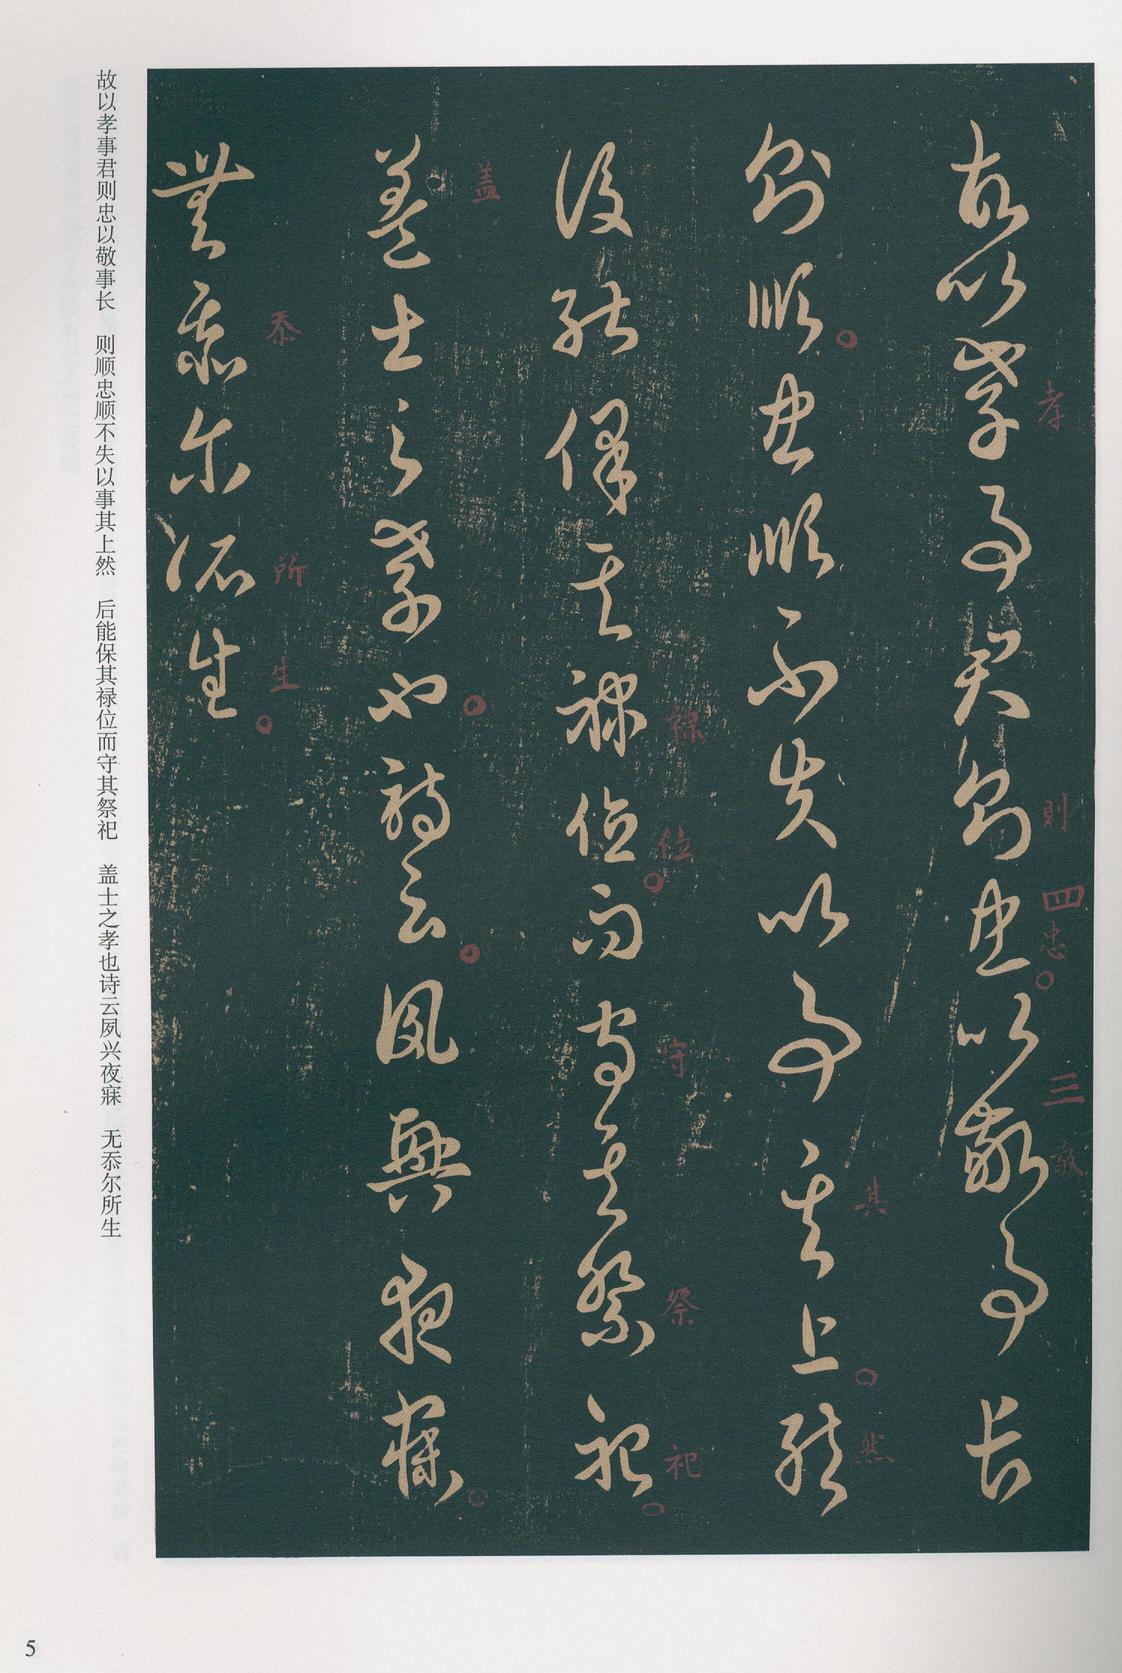 故以孝事君則忠以敬事長
則順忠順不失以事其上然
後能保其祿位而守其祭祀
蓋士之孝也詩云夙興夜寐
無忝尔所生
孝
則
四
忠
三
敬
其
然
祿
位
守
祭
祀
盖
忝
所
生
故以孝事君则忠以敬事长 则顺忠顺不失以事其上然 后能保其禄位而守其祭祀 盖士之孝也诗云夙兴夜寐 无忝尔所生
5